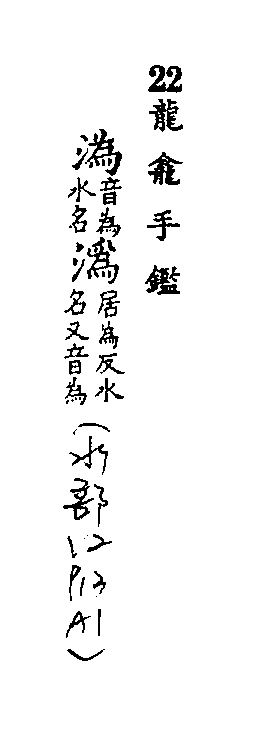 22龍龕手鑑
溈音為水名潙居為反水名又音為（水部12P13A1）